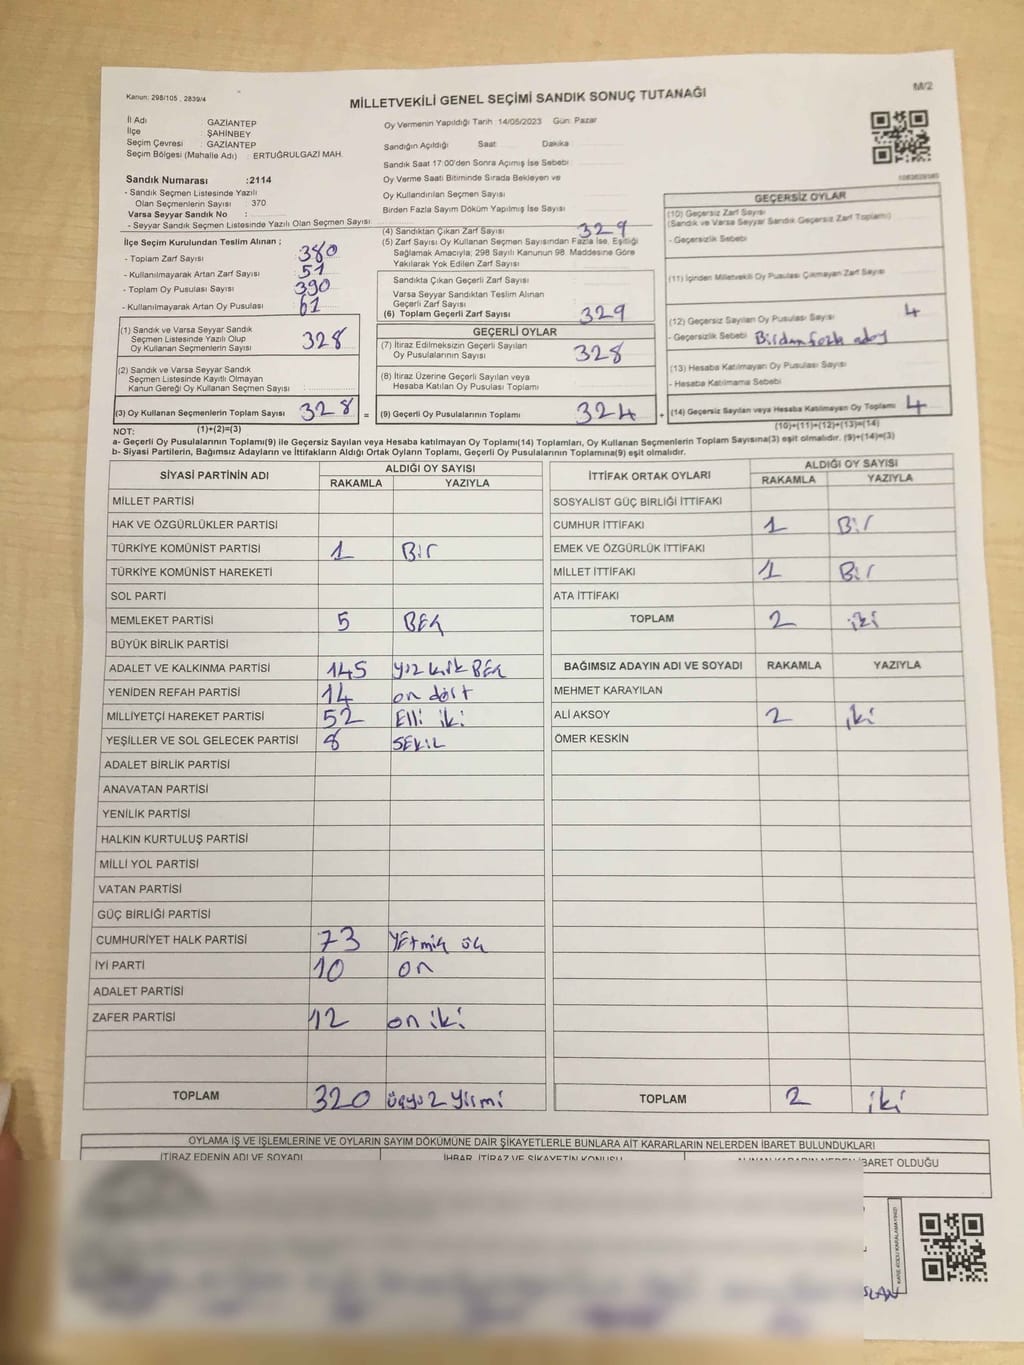 Kanun: 298/105 , 2839/4
MİLLETVEKİLİ GENEL SEÇİMİ SANDIK SONUÇ TUTANAĞI
M/2
İl Adı GAZİANTEP
İlçe ŞAHİNBEY
Seçim Çevresi : GAZİANTEP
Seçim Bölgesi (Mahalle Adı) : ERTUĞRULGAZİ MAH.
Oy Vermenin Yapıldığı Tarih :14/05/2023 Gün: Pazar
Sandığın Açıldığı Saat Dakika
Sandık Saat 17:00'den Sonra Açımış İse Sebebi
Oy Verme Saati Bitiminde Sırada Bekleyen ve
Oy Kullandırılan Seçmen Sayısı
Birden Fazla Sayım Döküm Yapılmış İse Sayısı
Sandık Numarası :2114
- Sandık Seçmen Listesinde Yazılı
Olan Seçmenlerin Sayısı : 370
Varsa Seyyar Sandık No :
- Seyyar Sandık Seçmen Listesinde Yazılı Olan Seçmen Sayısı
İlçe Seçim Kurulundan Teslim Alınan ;
- Toplam Zarf Sayısı 380
- Kullanılmayarak Artan Zarf Sayısı 51
- Toplam Oy Pusulası Sayısı 390
- Kullanılmayarak Artan Oy Pusulası 61
(1) Sandık ve Varsa Seyyar Sandık
Seçmen Listesinde Yazılı Olup
Oy Kullanan Seçmenlerin Sayısı 328
(2) Sandık ve Varsa Seyyar Sandık
Seçmen Listesinde Kayıtlı Olmayan
Kanun Gereği Oy Kullanan Seçmen Sayısı :
(3) Oy Kullanan Seçmenlerin Toplam Sayısı 328 =
(1)+(2)=(3)
(4) Sandıktan Çıkan Zarf Sayısı 329
(5) Zarf Sayısı Oy Kullanan Seçmen Sayısından Fazla İse, Eşitliği
Sağlamak Amacıyla; 298 Sayılı Kanunun 98. Maddesine Göre
Yakılarak Yok Edilen Zarf Sayısı
Sandıkta Çıkan Geçerli Zarf Sayısı
Varsa Seyyar Sandıktan Teslim Alınan
Geçerli Zarf Sayısı
(6) Toplam Geçerli Zarf Sayısı 329
GEÇERLİ OYLAR
(7) İtiraz Edilmeksizin Geçerli Sayılan
Oy Pusulalarının Sayısı 328
(8) İtiraz Üzerine Geçerli Sayılan veya
Hesaba Katılan Oy Pusulası Toplamı
(9) Geçerli Oy Pusulalarının Toplamı 324 +
GEÇERSİZ OYLAR
(10) Geçersiz Zarf Sayısı
(Sandık ve Varsa Seyyar Sandık Geçersiz Zarf Toplamı)
- Geçersizlik Sebebi
(11) İçinden Milletvekili Oy Pusulası Çıkmayan Zarf Sayısı
(12) Geçersiz Sayılan Oy Pusulası Sayısı 4
- Geçersizlik Sebebi Birden fazla aday
(13) Hesaba Katılmayan Oy Pusulası Sayısı
- Hesaba Katılmama Sebebi
(14) Geçersiz Sayılan veya Hesaba Katılmayan Oy Toplamı 4
(10)+(11)+(12)+(13)=(14)
NOT:
a- Geçerli Oy Pusulalarının Toplamı(9) ile Geçersiz Sayılan veya Hesaba katılmayan Oy Toplamı(14) Toplamları, Oy Kullanan Seçmenlerin Toplam Sayısına(3) eşit olmalıdır. (9)+(14)=(3)
b- Siyasi Partilerin, Bağımsız Adayların ve İttifakların Aldığı Oyların Toplamı, Geçerli Oy Pusulalarının Toplamına(9) eşit olmalıdır.
SİYASİ PARTİNİN ADI ALDIĞI OY SAYISI
RAKAMLA YAZIYLA
MİLLET PARTİSİ
HAK VE ÖZGÜRLÜKLER PARTİSİ
TÜRKİYE KOMÜNİST PARTİSİ 1 Bir
TÜRKİYE KOMÜNİST HAREKETİ
SOL PARTİ
MEMLEKET PARTİSİ 5 BEŞ
BÜYÜK BİRLİK PARTİSİ
ADALET VE KALKINMA PARTİSİ 145 yüz kırk BEŞ
YENİDEN REFAH PARTİSİ 14 on dört
MİLLİYETÇİ HAREKET PARTİSİ 52 Elli iki
YEŞİLLER VE SOL GELECEK PARTİSİ 8 SEKİZ
ADALET BİRLİK PARTİSİ
ANAVATAN PARTİSİ
YENİLİK PARTİSİ
HALKIN KURTULUŞ PARTİSİ
MİLLİ YOL PARTİSİ
VATAN PARTİSİ
GÜÇ BİRLİĞİ PARTİSİ
CUMHURİYET HALK PARTİSİ 73 YEtmiş üç
İYİ PARTİ 10 on
ADALET PARTİSİ
ZAFER PARTİSİ 12 on iki
TOPLAM 320 üçyüz yirmi
İTTİFAK ORTAK OYLARI ALDIĞI OY SAYISI
RAKAMLA YAZIYLA
SOSYALİST GÜÇ BİRLİĞİ İTTİFAKI
CUMHUR İTTİFAKI 1 Bir
EMEK VE ÖZGÜRLÜK İTTİFAKI
MİLLET İTTİFAKI 1 Bir
ATA İTTİFAKI
TOPLAM 2 iki
BAĞIMSIZ ADAYIN ADI VE SOYADI RAKAMLA YAZIYLA
MEHMET KARAYILAN
ALİ AKSOY 2 iki
ÖMER KESKİN
TOPLAM 2 iki
OYLAMA İŞ VE İŞLEMLERİNE VE OYLARIN SAYIM DÖKÜMÜNE DAİR ŞİKAYETLERLE BUNLARA AİT KARARLARIN NELERDEN İBARET BULUNDUKLARI
İTİRAZ EDENİN ADI VE SOYADI İHBAR, İTİRAZ VE ŞİKAYETİN KONUSU ALINAN KARARIN NEDEN İBARET OLDUĞU
KARE KODU KARALAMAYINIZ!